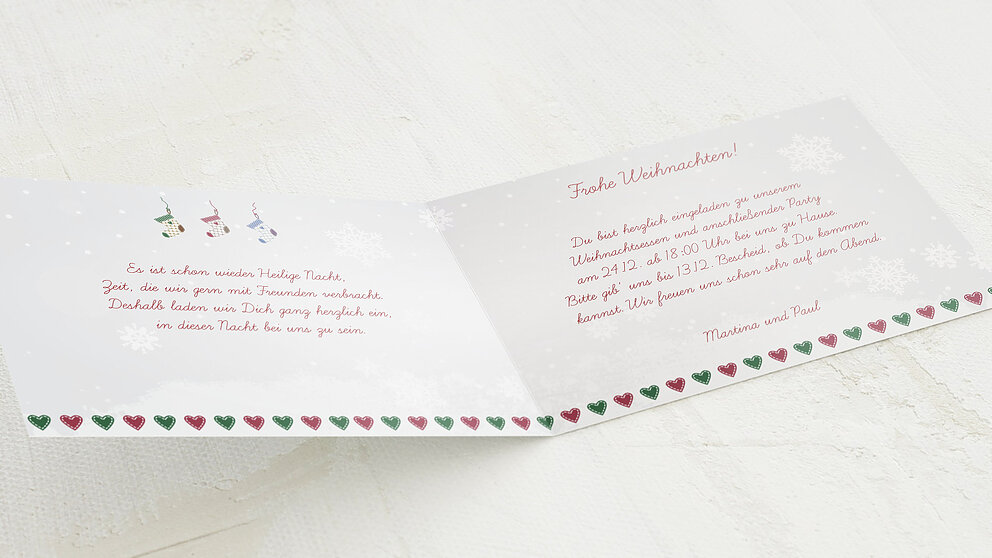 Es ist schon wieder Heilige Nacht,
Zeit, die wir gern mit Freunden verbracht.
Deshalb laden wir Dich ganz herzlich ein,
in dieser Nacht bei uns zu sein.
Frohe Weihnachten!
Du bist herzlich eingeladen zu unserem
Weihnachtsessen und anschließender Party
am 24.12. ab 18:00 Uhr bei uns zu Hause.
Bitte gib' uns bis 13.12. Bescheid, ob Du kommen
kannst. Wir freuen uns schon sehr auf den Abend.
Martina und Paul